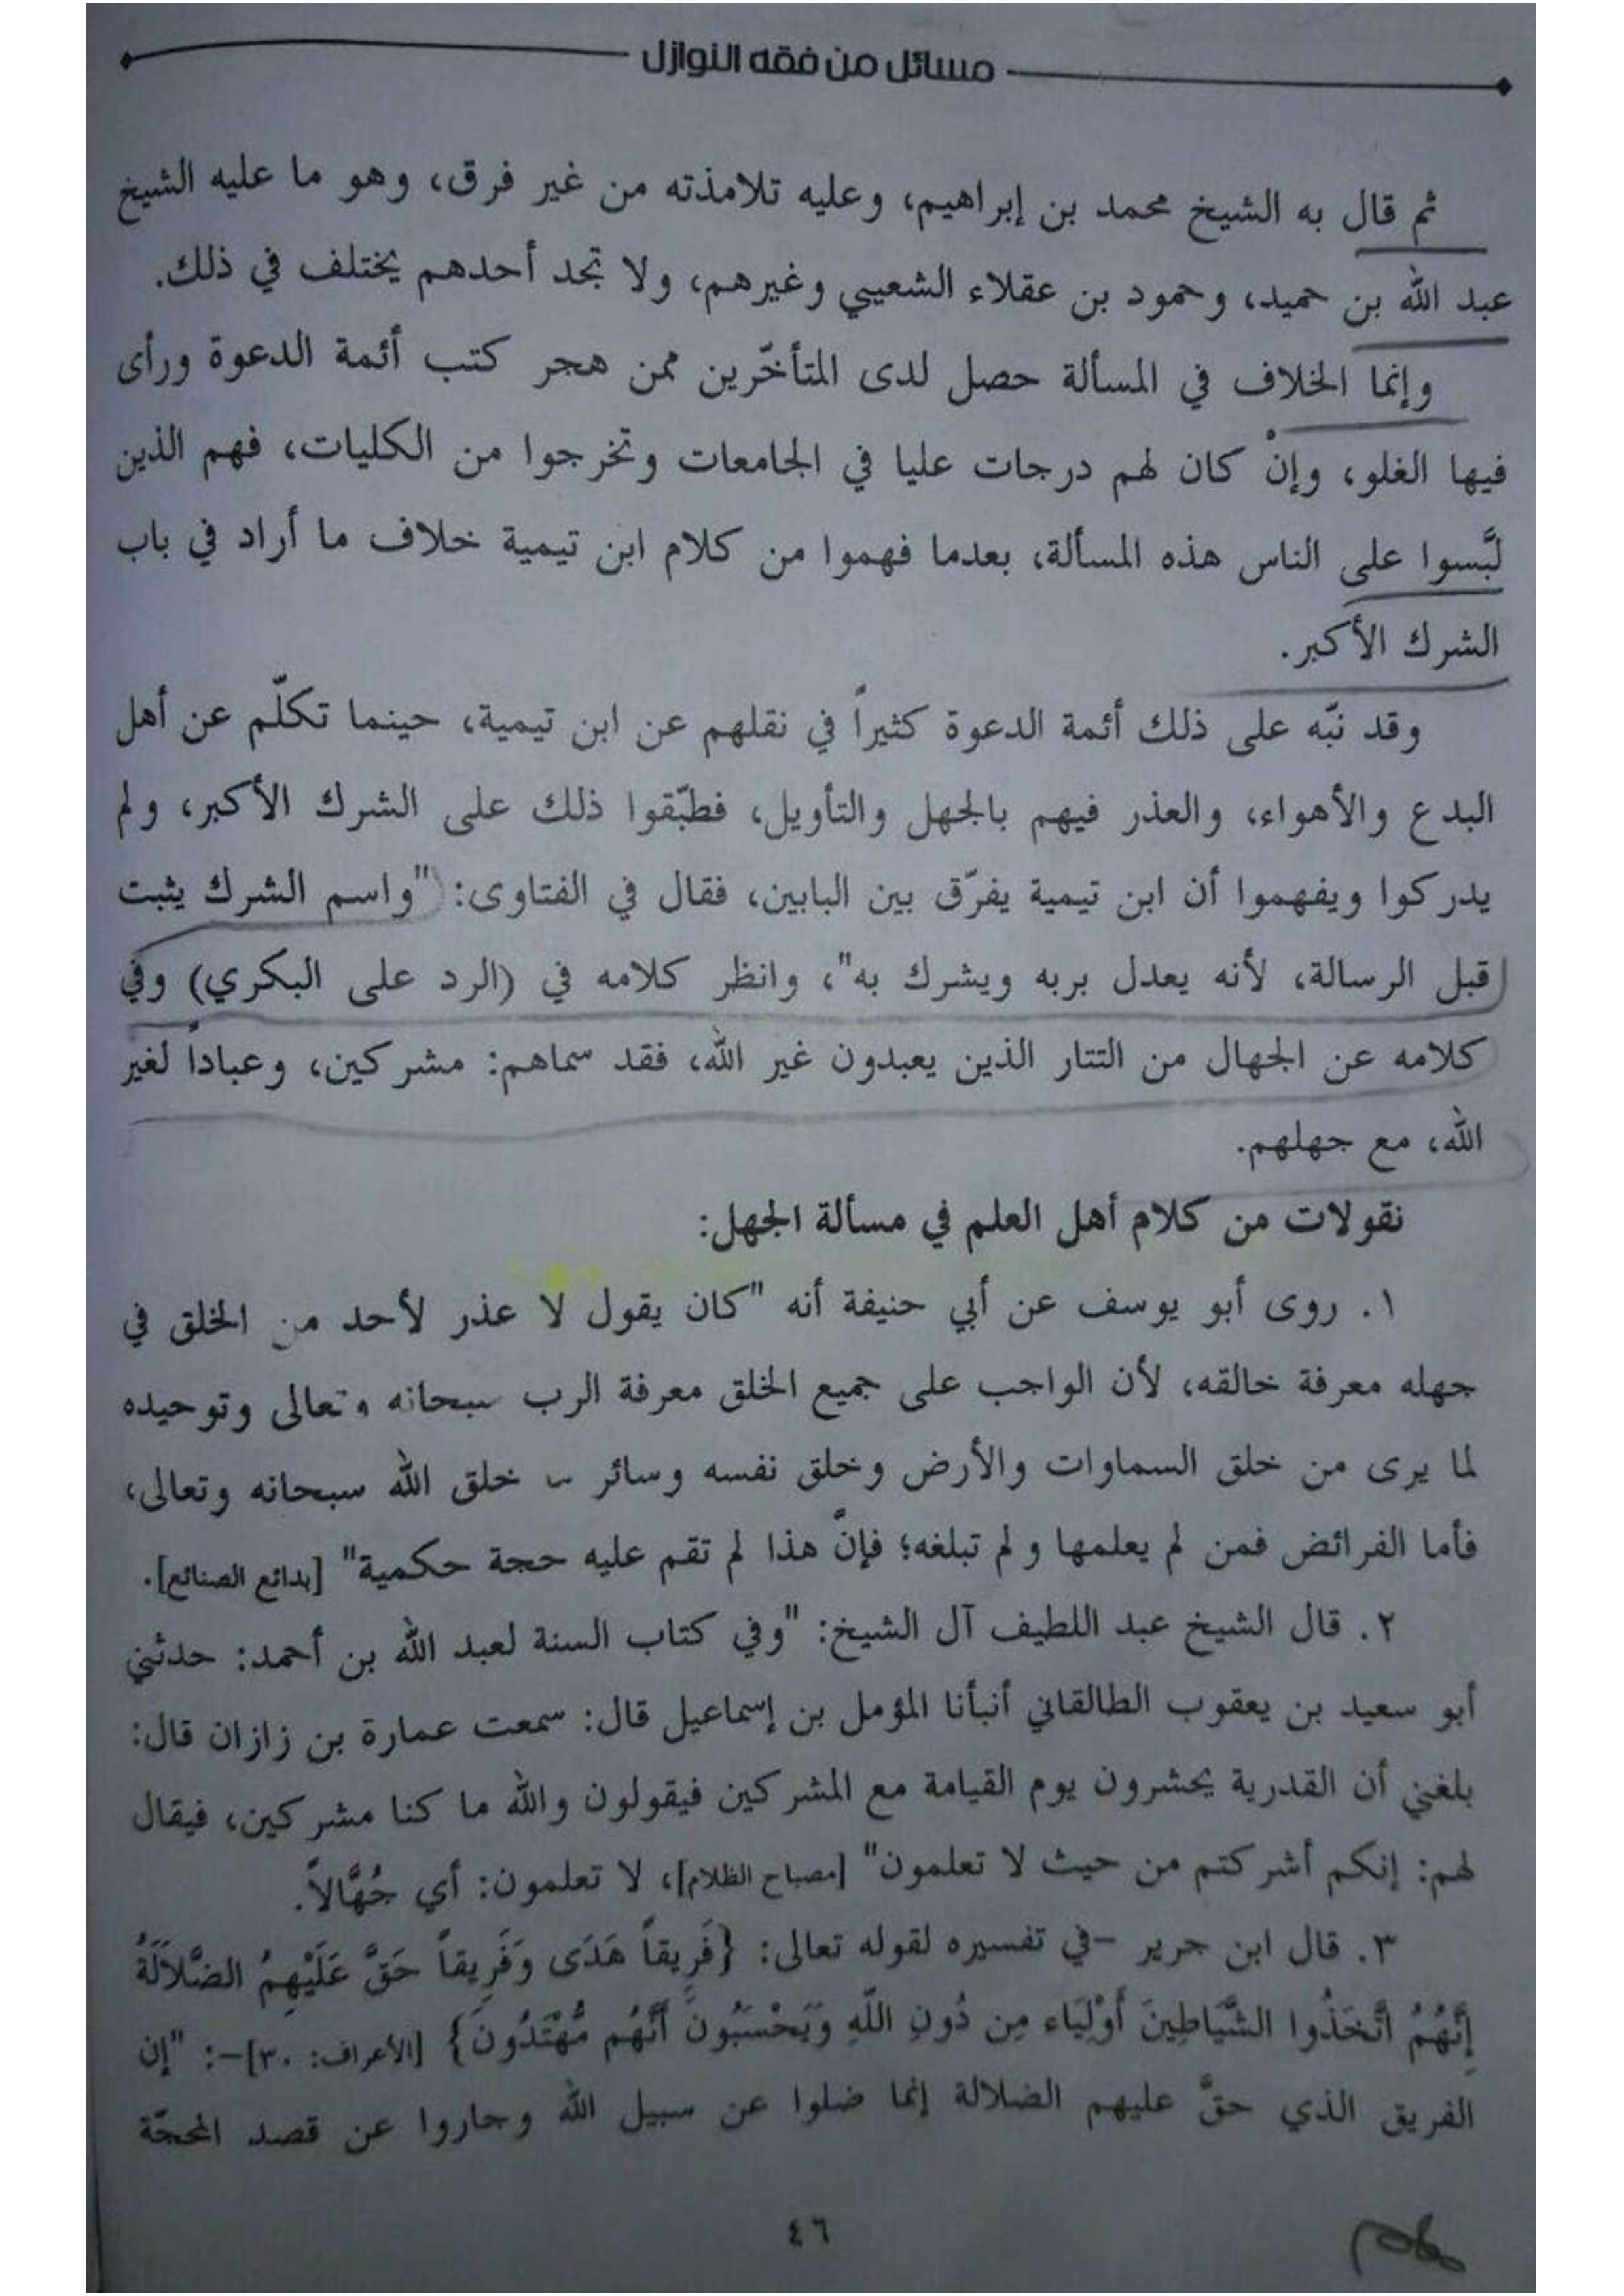 مسائل من فقه النوازل
ثم قال به الشيخ محمد بن إبراهيم، وعليه تلامذته من غير فرق، وهو ما عليه الشيخ
عبد الله بن حميد، وحمود بن عقلاء الشعيبي وغيرهم، ولا تجد أحدهم يختلف في ذلك.
وإنما الخلاف في المسألة حصل لدى المتأخّرين ممن هجر كتب أئمة الدعوة ورأى
فيها الغلو، وإنْ كان لهم درجات عليا في الجامعات وتخرجوا من الكليات، فهم الذين
لبَّسوا على الناس هذه المسألة، بعدما فهموا من كلام ابن تيمية خلاف ما أراد في باب
الشرك الأكبر.
وقد نبّه على ذلك أئمة الدعوة كثيراً في نقلهم عن ابن تيمية، حينما تكلّم عن أهل
البدع والأهواء، والعذر فيهم بالجهل والتأويل، فطبّقوا ذلك على الشرك الأكبر، ولم
يدركوا ويفهموا أن ابن تيمية يفرّق بين البابين، فقال في الفتاوى: "واسم الشرك يثبت
قبل الرسالة، لأنه يعدل بربه ويشرك به"، وانظر كلامه في (الرد على البكري) وفي
كلامه عن الجهال من التتار الذين يعبدون غير الله، فقد سماهم: مشركين، وعباداً لغير
الله، مع جهلهم.
نقولات من كلام أهل العلم في مسألة الجهل:
١. روى أبو يوسف عن أبي حنيفة أنه "كان يقول لا عذر لأحد من الخلق في
جهله معرفة خالقه، لأن الواجب على جميع الخلق معرفة الرب سبحانه وتعالى وتوحيده
لما يرى من خلق السماوات والأرض وخلق نفسه وسائر خلق الله سبحانه وتعالى،
فأما الفرائض فمن لم يعلمها ولم تبلغه؛ فإنَّ هذا لم تقم عليه حجة حكمية" [بدائع الصنائع].
٢. قال الشيخ عبد اللطيف آل الشيخ: "وفي كتاب السنة لعبد الله بن أحمد: حدثني
أبو سعيد بن يعقوب الطالقاني أنبأنا المؤمل بن إسماعيل قال: سمعت عمارة بن زازان قال:
بلغني أن القدرية يحشرون يوم القيامة مع المشركين فيقولون والله ما كنا مشركين، فيقال
لهم: إنكم أشركتم من حيث لا تعلمون" [مصباح الظلام]، لا تعلمون: أي جُهَّالاً.
٣. قال ابن جرير -في تفسيره لقوله تعالى: {فَرِيقاً هَدَى وَفَرِيقاً حَقَّ عَلَيْهِمُ الضَّلاَلَةُ
إِنَّهُمُ اتَّخَذُوا الشَّيَاطِينَ أَوْلِيَاء مِن دُونِ اللّهِ وَيَحْسَبُونَ أَنَّهُم مُّهْتَدُونَ} [الأعراف: ٣٠]-: "إن
الفريق الذي حقَّ عليهم الضلالة إنما ضلوا عن سبيل الله وجاروا عن قصد المحجّة
٤٦